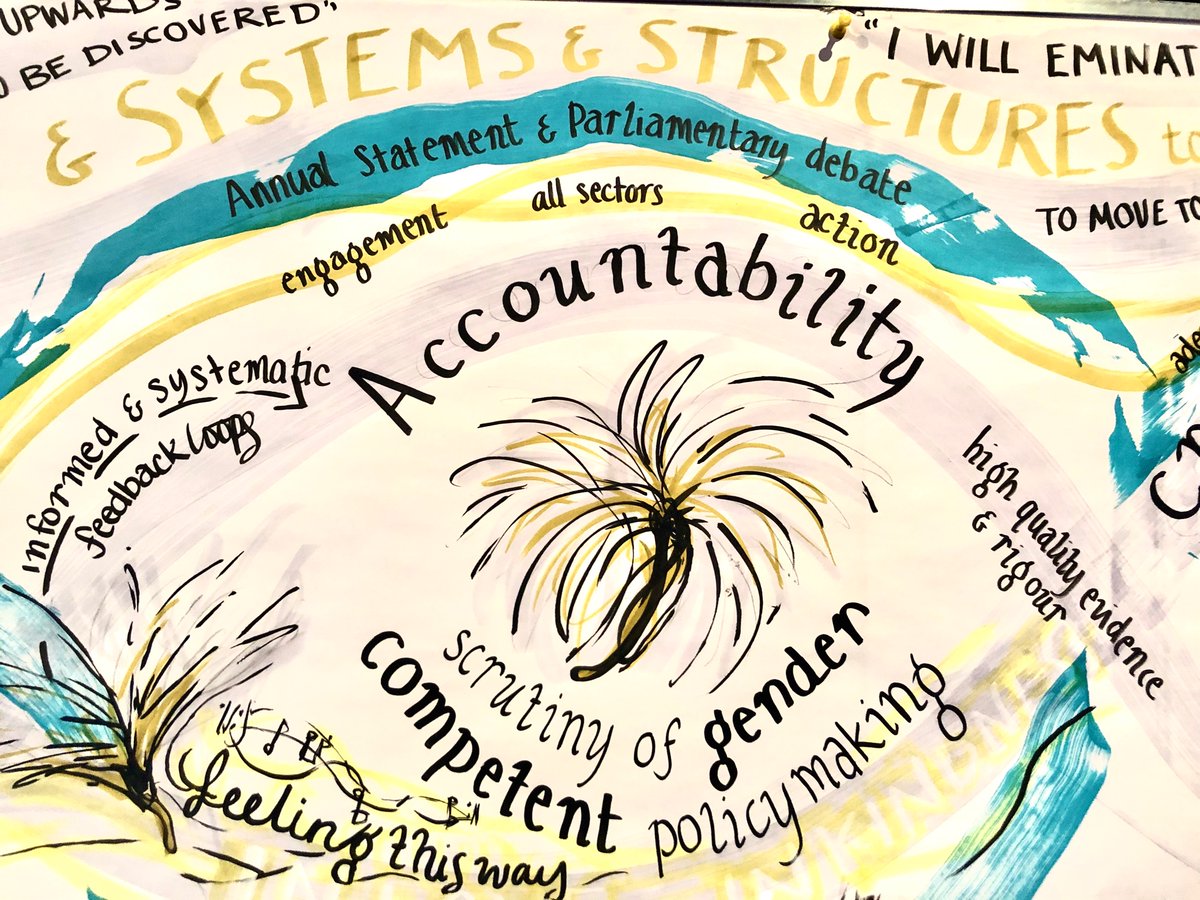 UPWARDS
O BE DISCOVERED"
"I WILL EMINAT
& SYSTEMS & STRUCTURES to
TO MOVE TO
Annual Statement & Parliamentary debate
engagement all sectors action
Accountability
informed & systematic
feedback loops
high quality evidence
& rigour
scrutiny of gender
competent policymaking
feeling this way